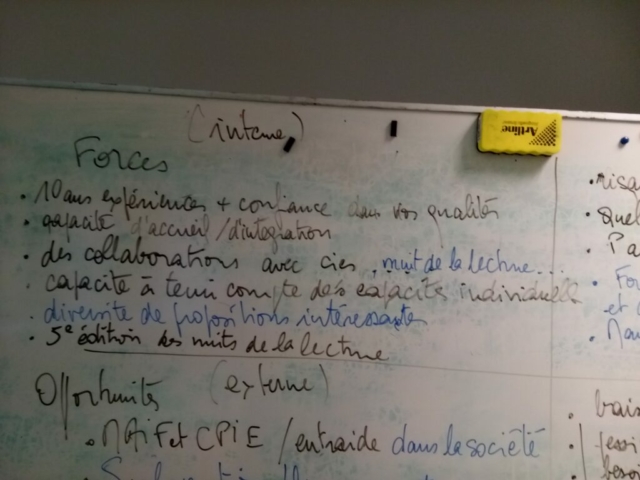 (interne)
Forces
Artline
. 10 ans expériences + confiance dans vos qualités
. capacité d'accueil / d'intégration
. des collaborations avec cies, nuit de la lecture...
. capacité à tenir compte des capacités individuell
. diversité de propositions intéressantes
. 5e édition des nuits de la lecture
Opportunités (externe)
. MAIF et CPIE / entraide dans la société
. risq
. quel
. Pa
. Fo
et
. bais
besoi